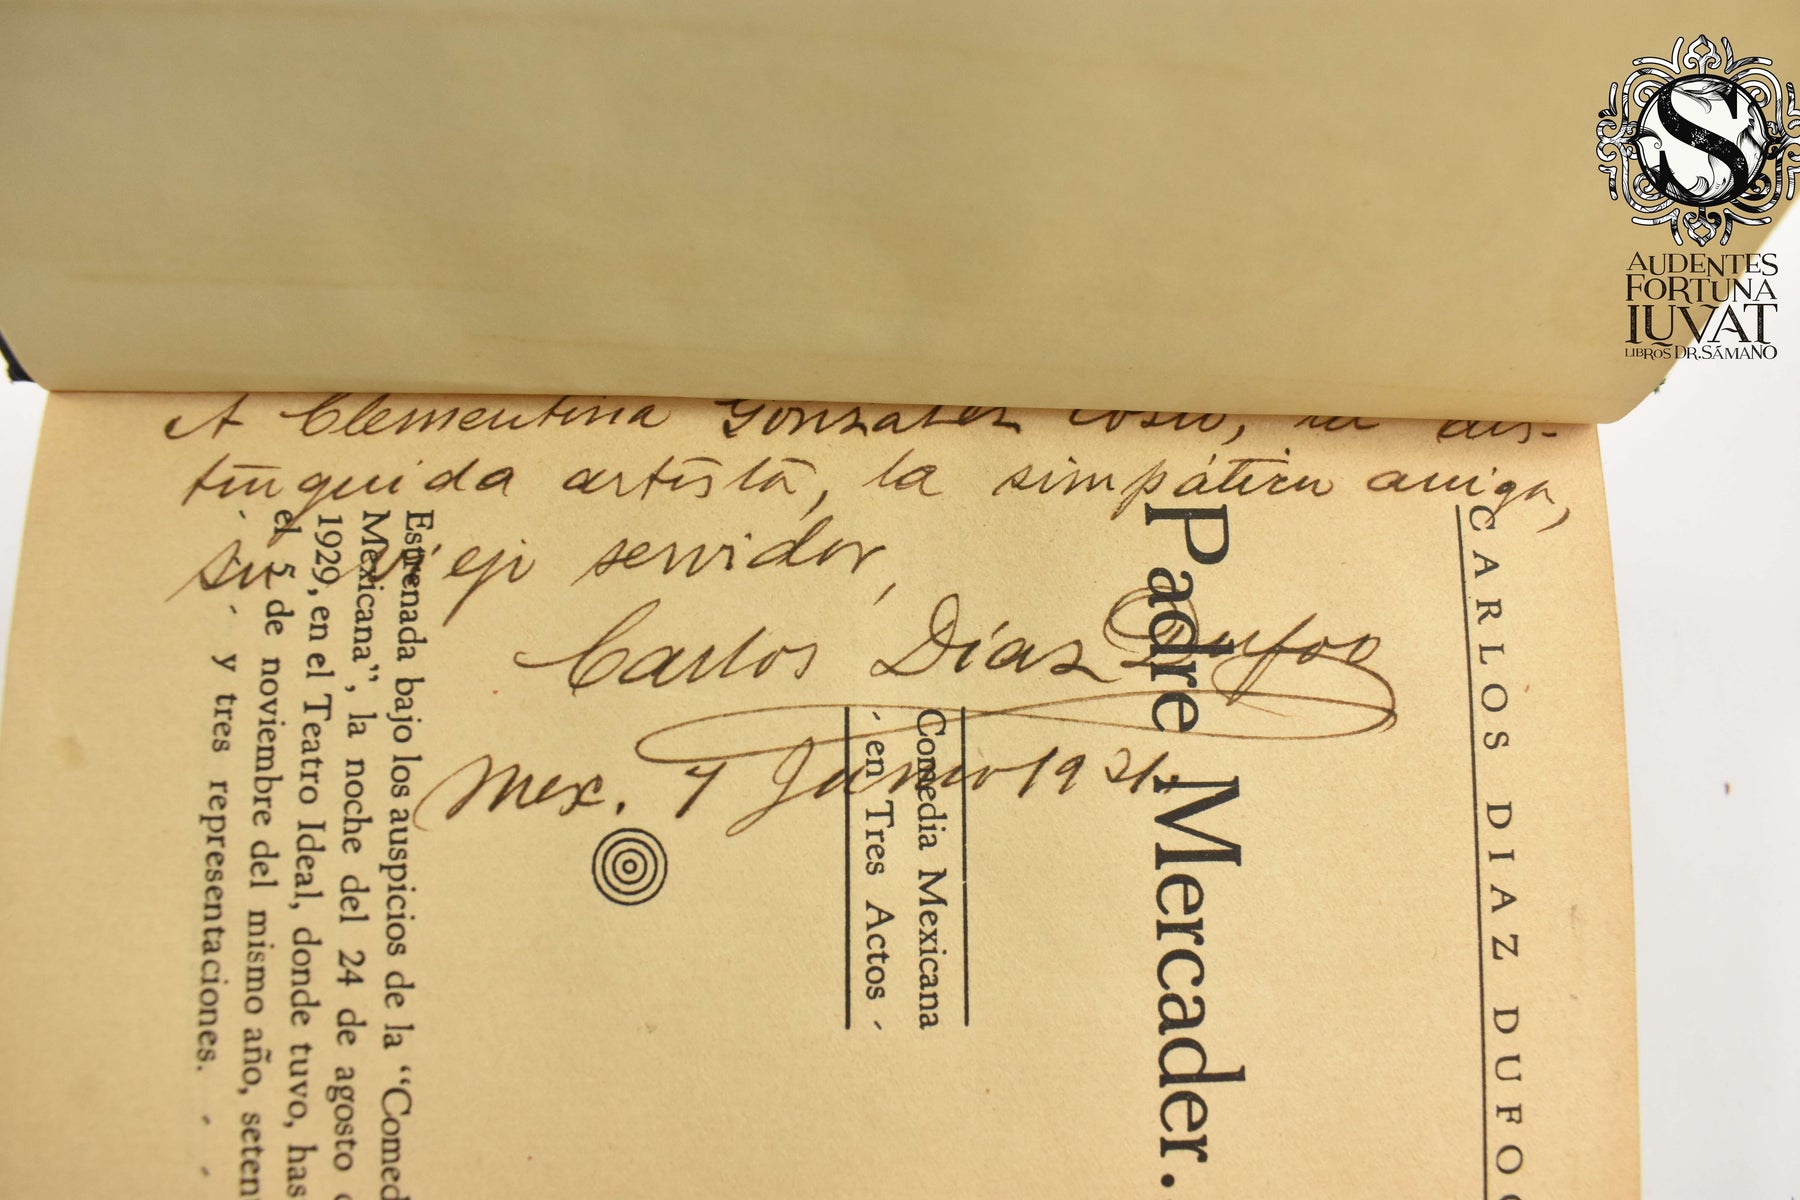 A Clementina Gonzalez Cosio, la dis-
tinguida artista, la simpática amiga,
su viejo servidor,
Carlos Díaz Dufoo
Mex. 7 Junio
CARLOS DIAZ DUFOO
Padre Mercader.
Comedia Mexicana
· en Tres Actos ·
Estrenada bajo los auspicios de la "Comed
Mexicana", la noche del 24 de agosto
1929, en el Teatro Ideal, donde tuvo, has
el 5 de noviembre del mismo año, seten
· · y tres representaciones. · ·
S
AUDENTES
FORTUNA
IUVAT
LIBROS DR. SÁMANO